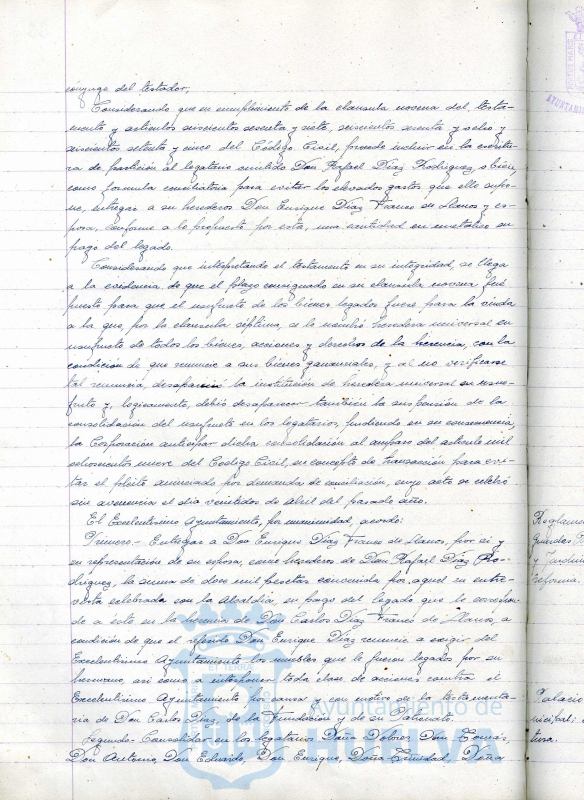 cónyuge del testador;
Considerando que en cumplimiento de la clausula novena del testa-
mento y articulos seiscientos sesenta y siete, seiscientos setenta y ocho y
seiscientos setenta y cinco del Código Civil, procede incluir en la escritu-
ra de partición al legatario omitido Don Rafael Diaz Rodriguez, o bien,
como formula conciliatoria para evitar los elevados gastos que ello supo-
ne, entregar a su heredero Don Enrique Diaz Franco de Llanos y es-
posa, conforme a lo propuesto por esta, una cantidad en metalico en
pago del legado.
Considerando que interpretando el testamento en su integridad, se llega
a la evidencia, de que el plazo consignado en su clausula novena fué
puesto para que el usufructo de los bienes legados fuese para la viuda
a la que, por la clausula septima, se le nombró heredera universal en
usufructo de todos los bienes, acciones y derechos de la herencia, con la
condición de que renuncie a sus bienes gananciales, y al no verificarse
tal renuncia, desapareció la institución de heredera universal en usu-
fruto y, logicamente, debió desaparecer también la suspensión de la
consolidación del usufruto en los legatarios, pudiendo en su consecuencia,
la Corporación anticipar dicha consolidación al amparo del articulo mil
ochocientos nueve del Codigo Civil, en concepto de transacción para evi-
tar el pleito anunciado por demandas de conciliación, cuyo acto se celebró
sin avenencia el dia veintidos de abril del pasado año.
El Excelentísimo Ayuntamiento, por unanimidad, acordó:
Primero.- Entregar a Don Enrique Diaz Franco de Llanos, por si y
en representación de su esposa, como herederos de Don Rafael Diaz Ro-
driguez, la suma de doce mil pesetas convenida por aquel en entre-
vista celebrada con la Alcaldia, en pago del legado que le correspon-
de a este en la herencia de Don Carlos Diaz Franco de Llanos, a
condición de que el referido Don Enrique Diaz renuncie a exigir del
Excelentísimo Ayuntamiento los muebles que le fueron legados por su
hermano, así como a interponer toda clase de acciones contra el
Excelentísimo Ayuntamiento por causa y con motivo de la testamenta-
ria de Don Carlos Diaz, de la Fundación y de su Patronato.
Segundo.- Consolidar en los legatarios Doña Dolores, Don Tomás,
Don Antonio, Don Eduardo, Don Enrique, Doña Trinidad, Doña
Reglamen
Guardas
y Jardin
reforma.
Palacio
nicipal:
tura.
Ayuntamiento de
HUELVA